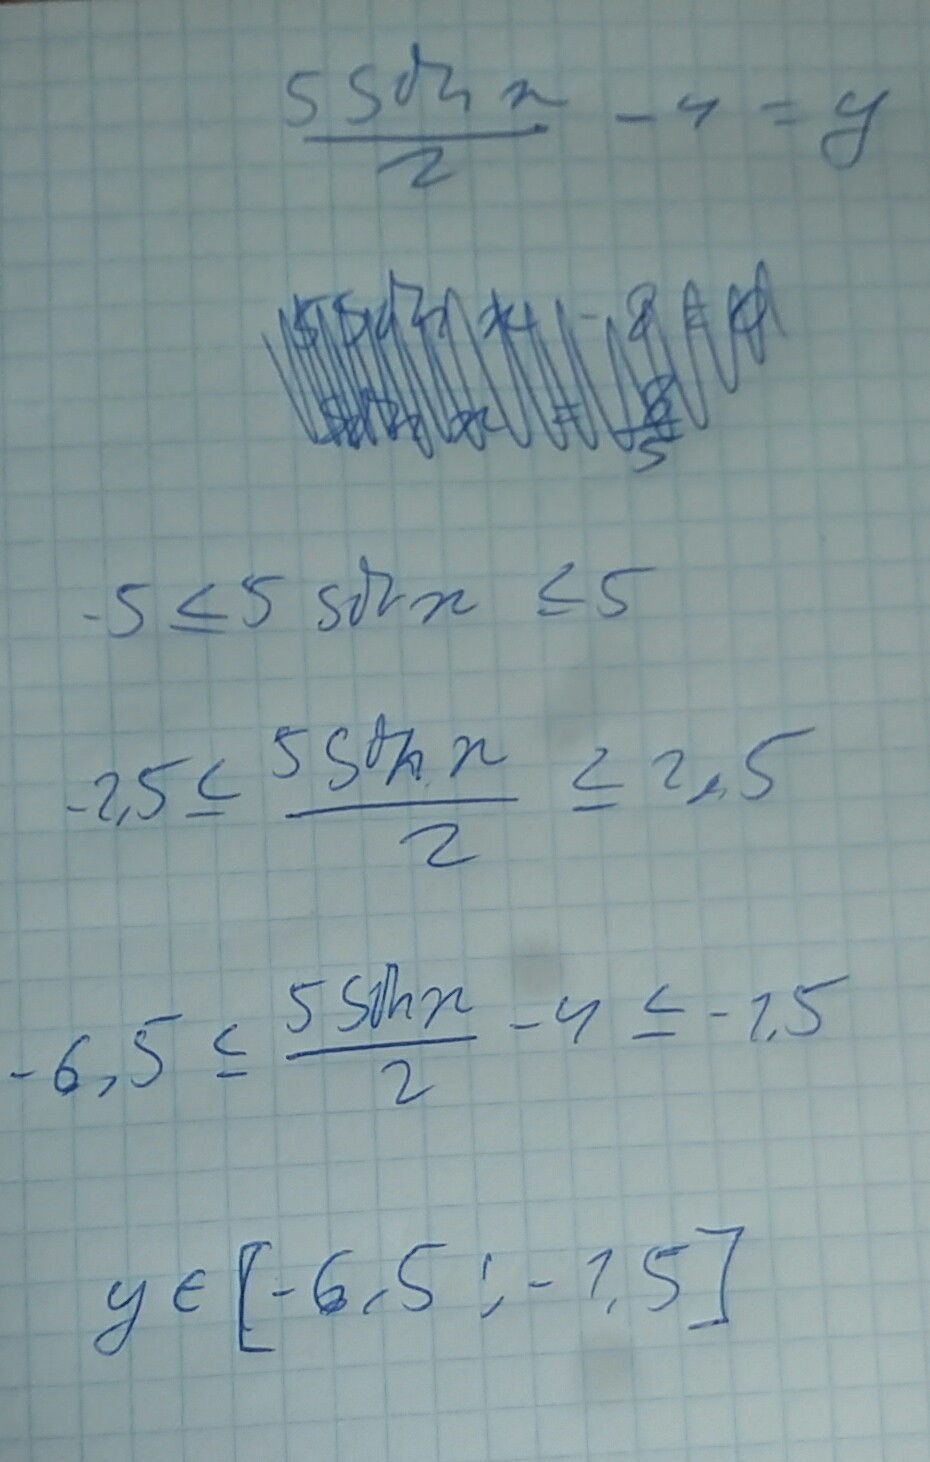 5 sin x / 2 - 4 = y
-5 ≤ 5 sin x ≤ 5
-2,5 ≤ 5 sin x / 2 ≤ 2,5
-6,5 ≤ 5 sin x / 2 - 4 ≤ -1,5
y ∈ [-6,5 ; -1,5]